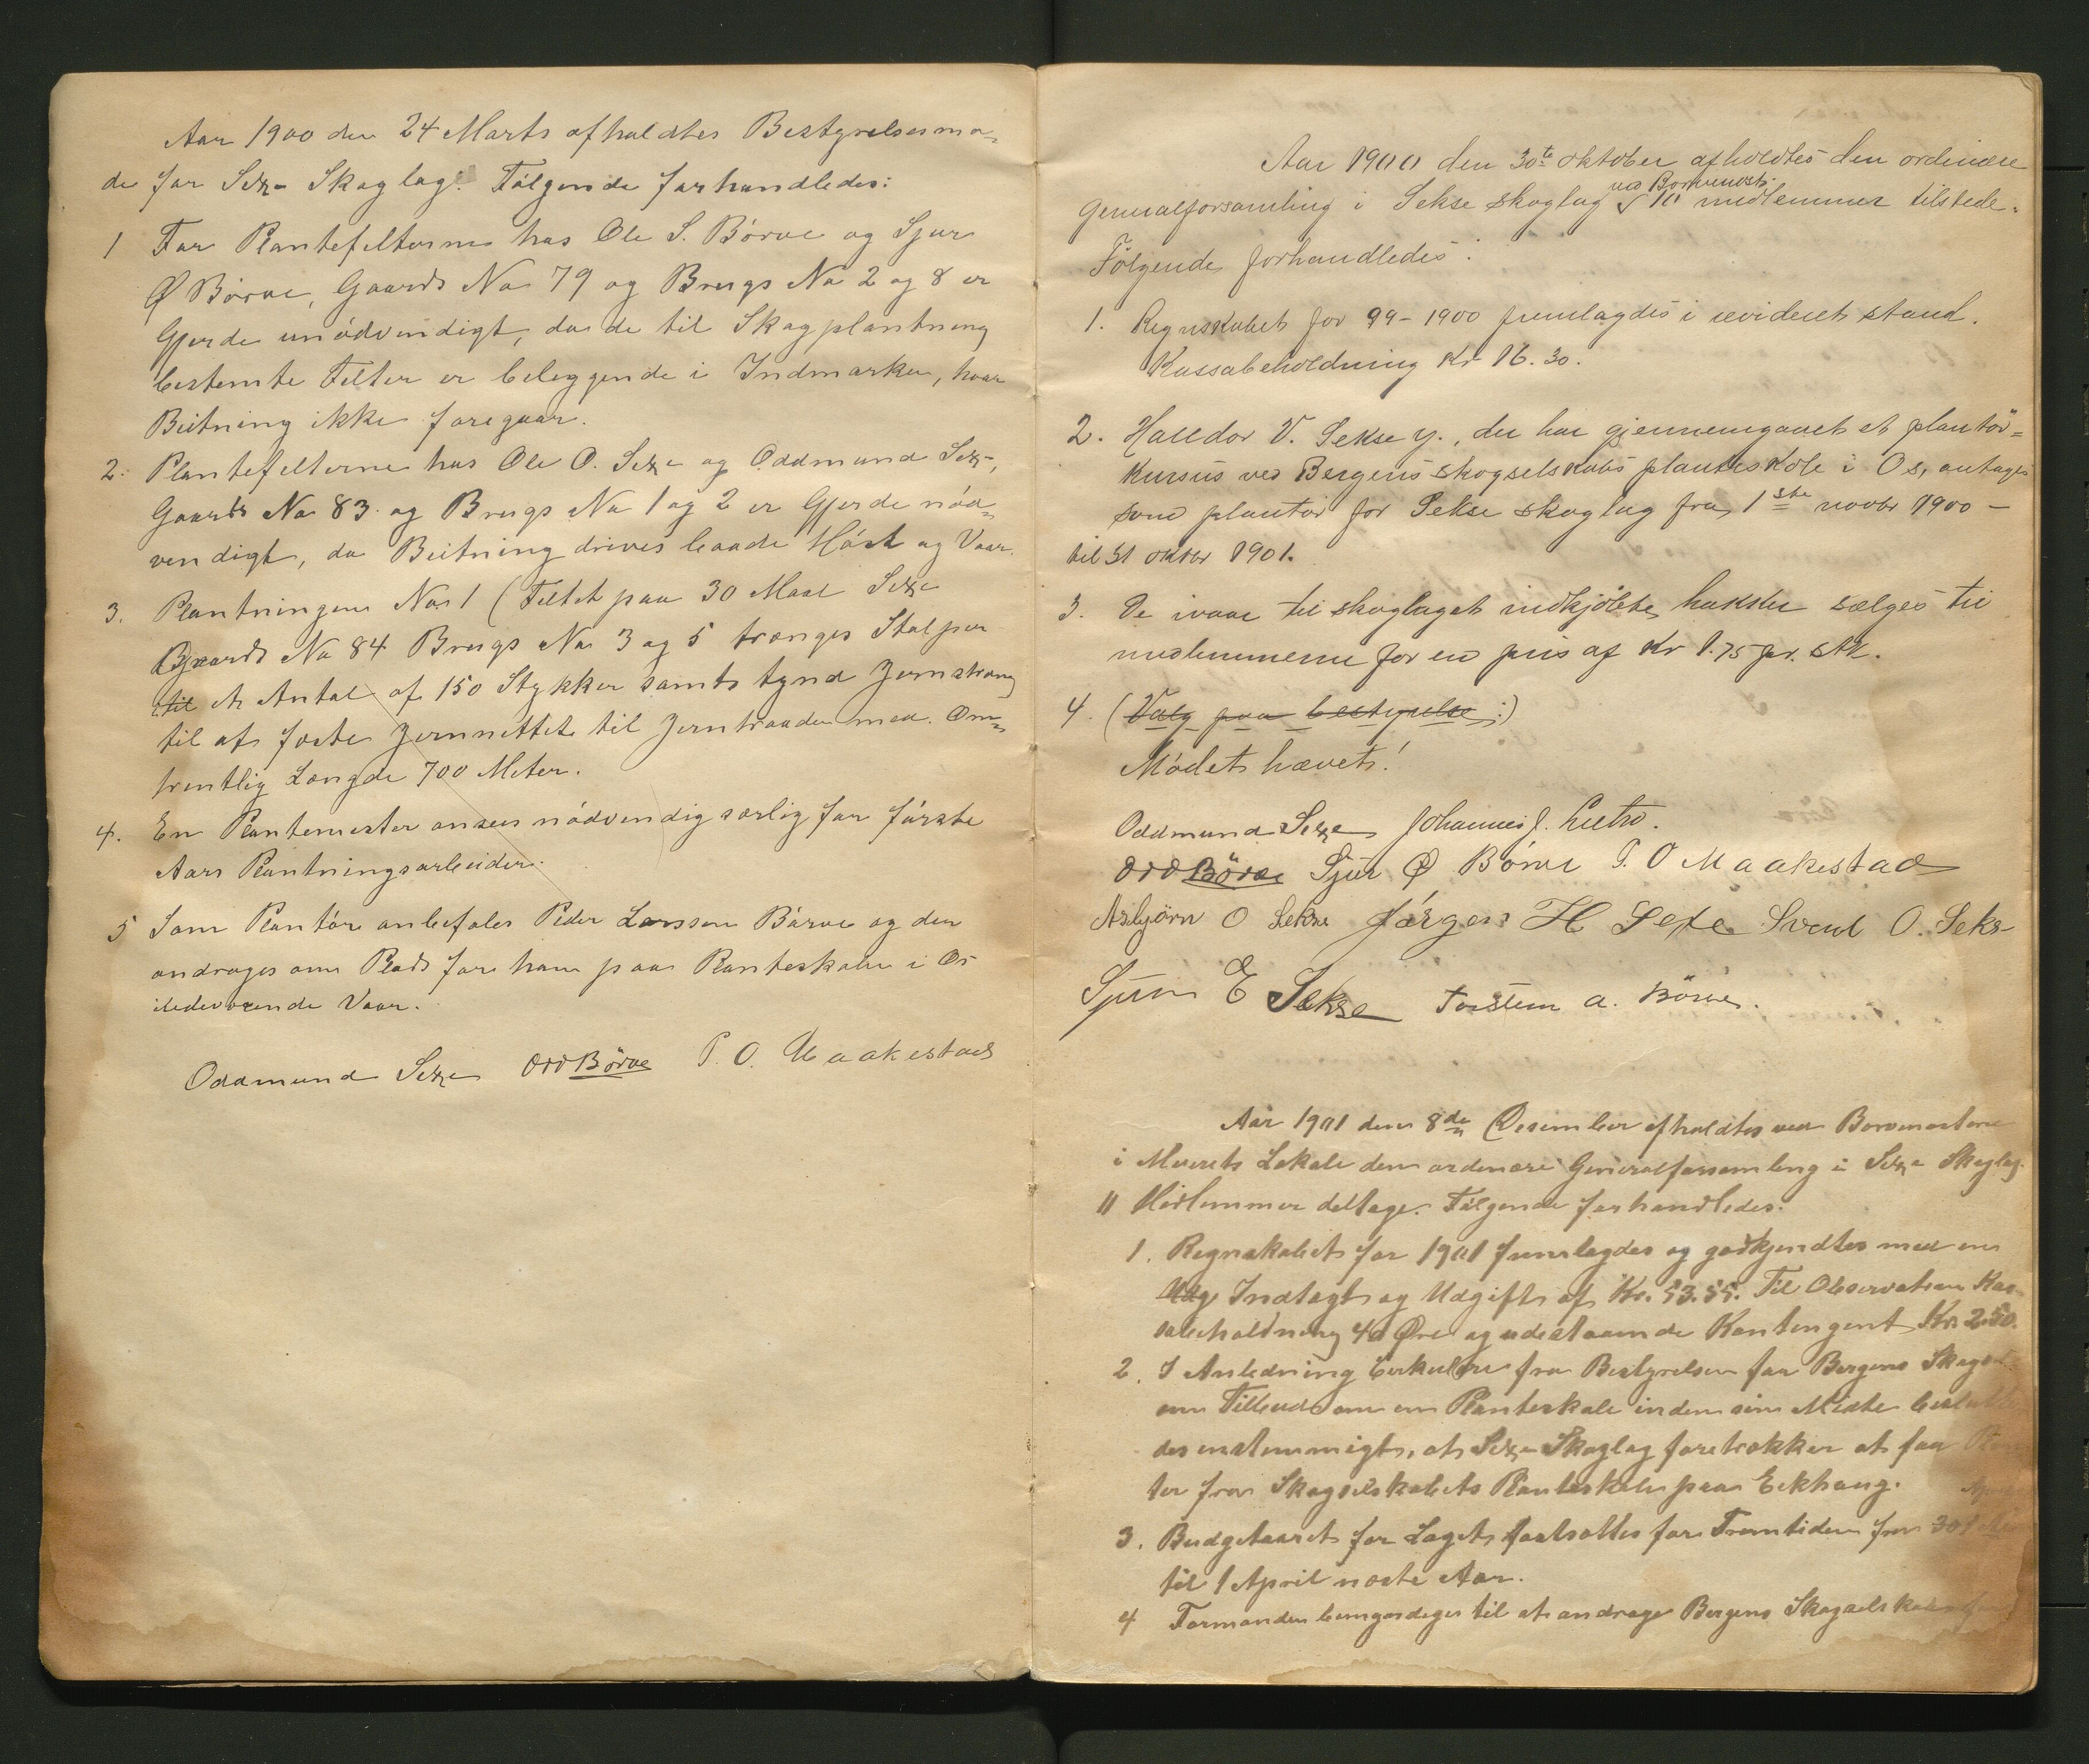 Aar 1900 den 24 Marts afholdtes Bestyrelsesmø-
de for Sexe Skoglag. Følgende forhandledes:
1 For Plantefelterne hos Ole S. Børve og Sjur
Ø Børve, Gaards No 79 og Brugs No 2 og 8 er
Gjerde unødvendigt, da de til Skogplantning
bestemte Felter er beliggende i Indmarken, hvor
Beitning ikke foregaar.
2. Plantefelterne hos Ole O. Sexe og Oddmund Sexe,
Gaards No 83 og Brugs No 1 og 2 er Gjerde nød-
vendigt, da Beitning drives baade Høst og Vaar.
3. Plantningen No 1 (Feltet paa 30 Maal Sexe
Gaards No 84 Brugs No 3 og 5 trænges Stolper
til et Antal af 150 Stykker samt tynd Jernstreng
til at feste Jernnettet til Jerntraaden med. Om-
trentlig Længde 700 Meter.
4. En Plantemester ansees nødvendig særlig for første
Aars Plantningsarbeider.
5 Som Plantør anbefales Peder Larssen Børve og der
andrages om Plads for ham paa Planteskolen i Os
idedværende Vaar.
Oddmund Sexe OddBörve P. O. Maakestad
Aar 1900 den 30te oktober afholdtes den ordinære
ved Borvenøst.
Generalforsamling i Sekse skoglag 10 medlemmer tilstede.
Følgende forhandledes:
1. Regnskabet for 99-1900 fremlagdes i revideret stand.
Kassabeholdning Kr 16.30.
2. Halldor V. Sekse y., der har gjennemgaaet et plantör=
kursus ved Bergens skogselskabs planteskole i Os, antages
som plantör for Sekse skoglag fra 1ste novbr 1900 –
til 31 oktbr 1901.
3. De ivaar til skoglaget indkjöbte hakker sælges til
medlemmerne for en pris af Kr 1.75 pr. stk.
4. (Valg paa bestyrelse:)
Mödet hævet!
Oddmund Sexe Johannes J. Lutro.
OddBörve Sjur Ø Børve P. O Maakestad
Asbjörn O Sekse Jørgen H Sexe Svend O. Sekse
Sjur E Sekse Torstein A. Börve.
Aar 1901 den 8de Desember afholdtes ved Borvenøstene
i Meieriets Lokale den ordinære Generalforsamling i Sexe Skoglag.
11 Medlemmer deltage. Følgende forhandledes.
1. Regnskabet for 1901 fremlagdes og godkjendtes med en
Udg Indtægt og Udgift af Kr. 53.55. Til Observation Kas-
sabeholdning 40 Øre og udestaaende Kontingent Kr. 2.50.
2. I Anledning Cirkulære fra Bestyrelsen for Bergens Skogsel-
om Tilbud om en Planteskole inden sin Midte beslutte-
des enstemmigt, at Sexe Skoglag foretrækker at faa
ter fra Skogselskabets Planteskole paa Eckhaug.
3. Budgetaaret for Laget fastsattes for Fremtiden fra
til 1 April næste Aar.
4 Formanden bemyndiges til at andrage Bergens Skogselskab